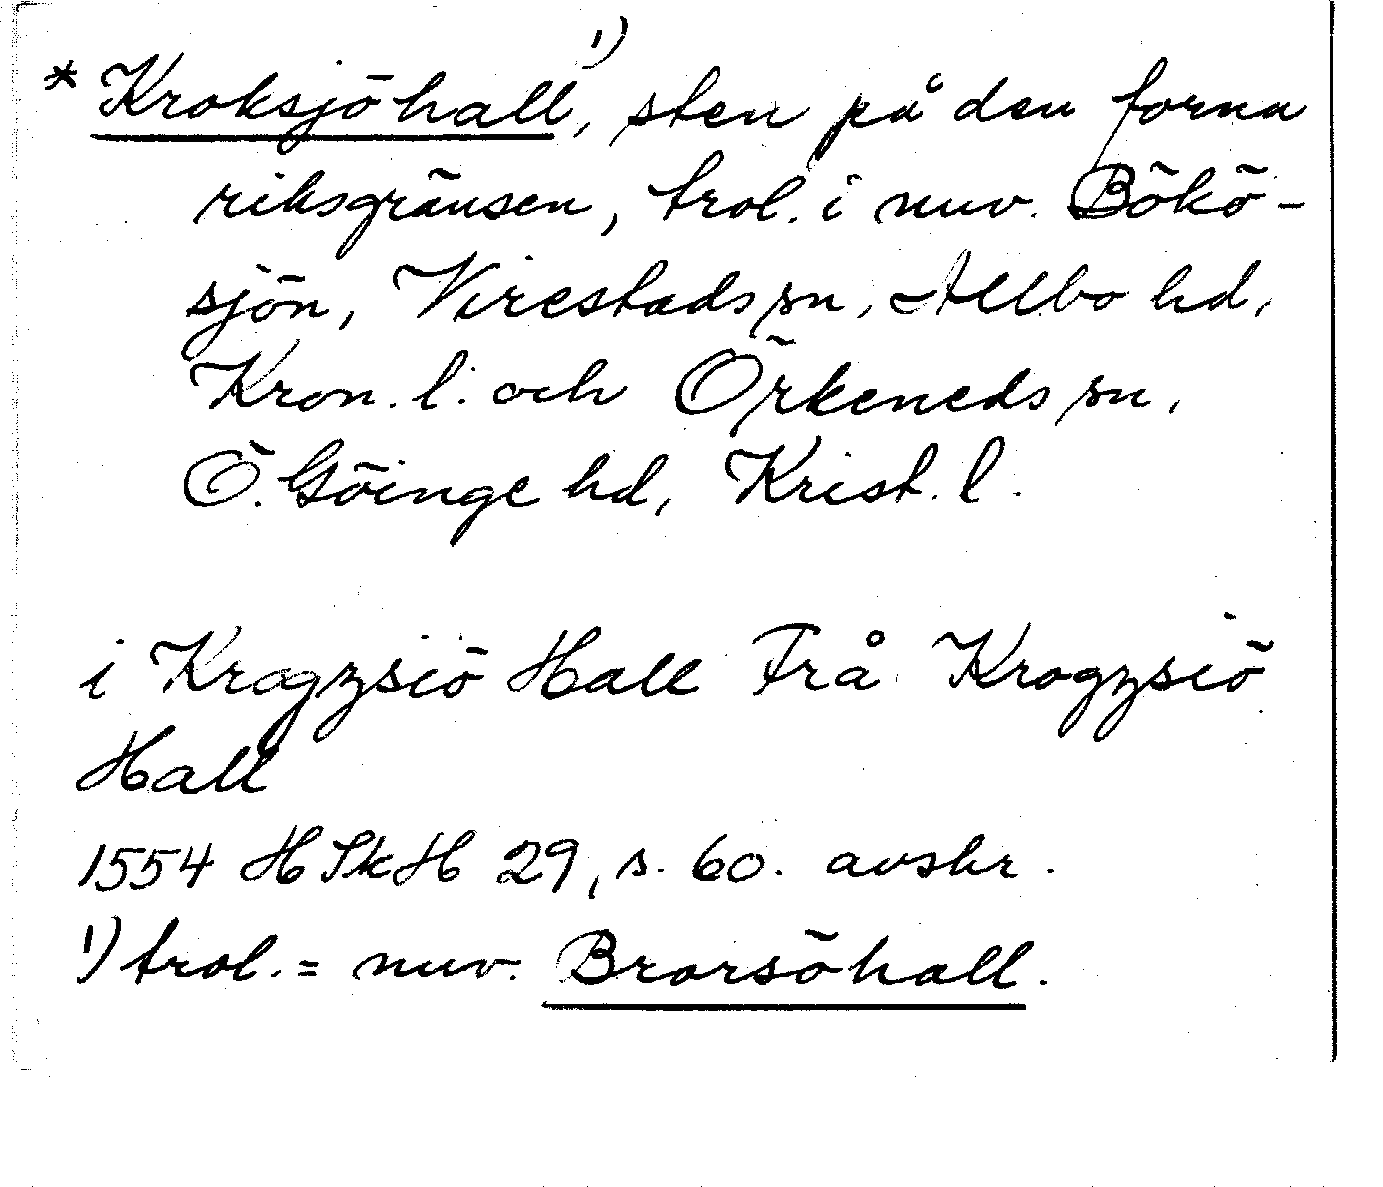 * Kroksjöhall¹⁾, sten på den forna
riksgränsen, trol. i nuv. Bökö-
sjön, Virestads sn, Allbo hd,
Kron. l. och Örkeneds sn,
Ö. Göinge hd, Krist. l.
i Krogzsiö Hall Frå Krogzsiö
Hall
1554 HSkH 29, s. 60. avskr.
¹⁾ trol. = nuv. Brorsöhall.